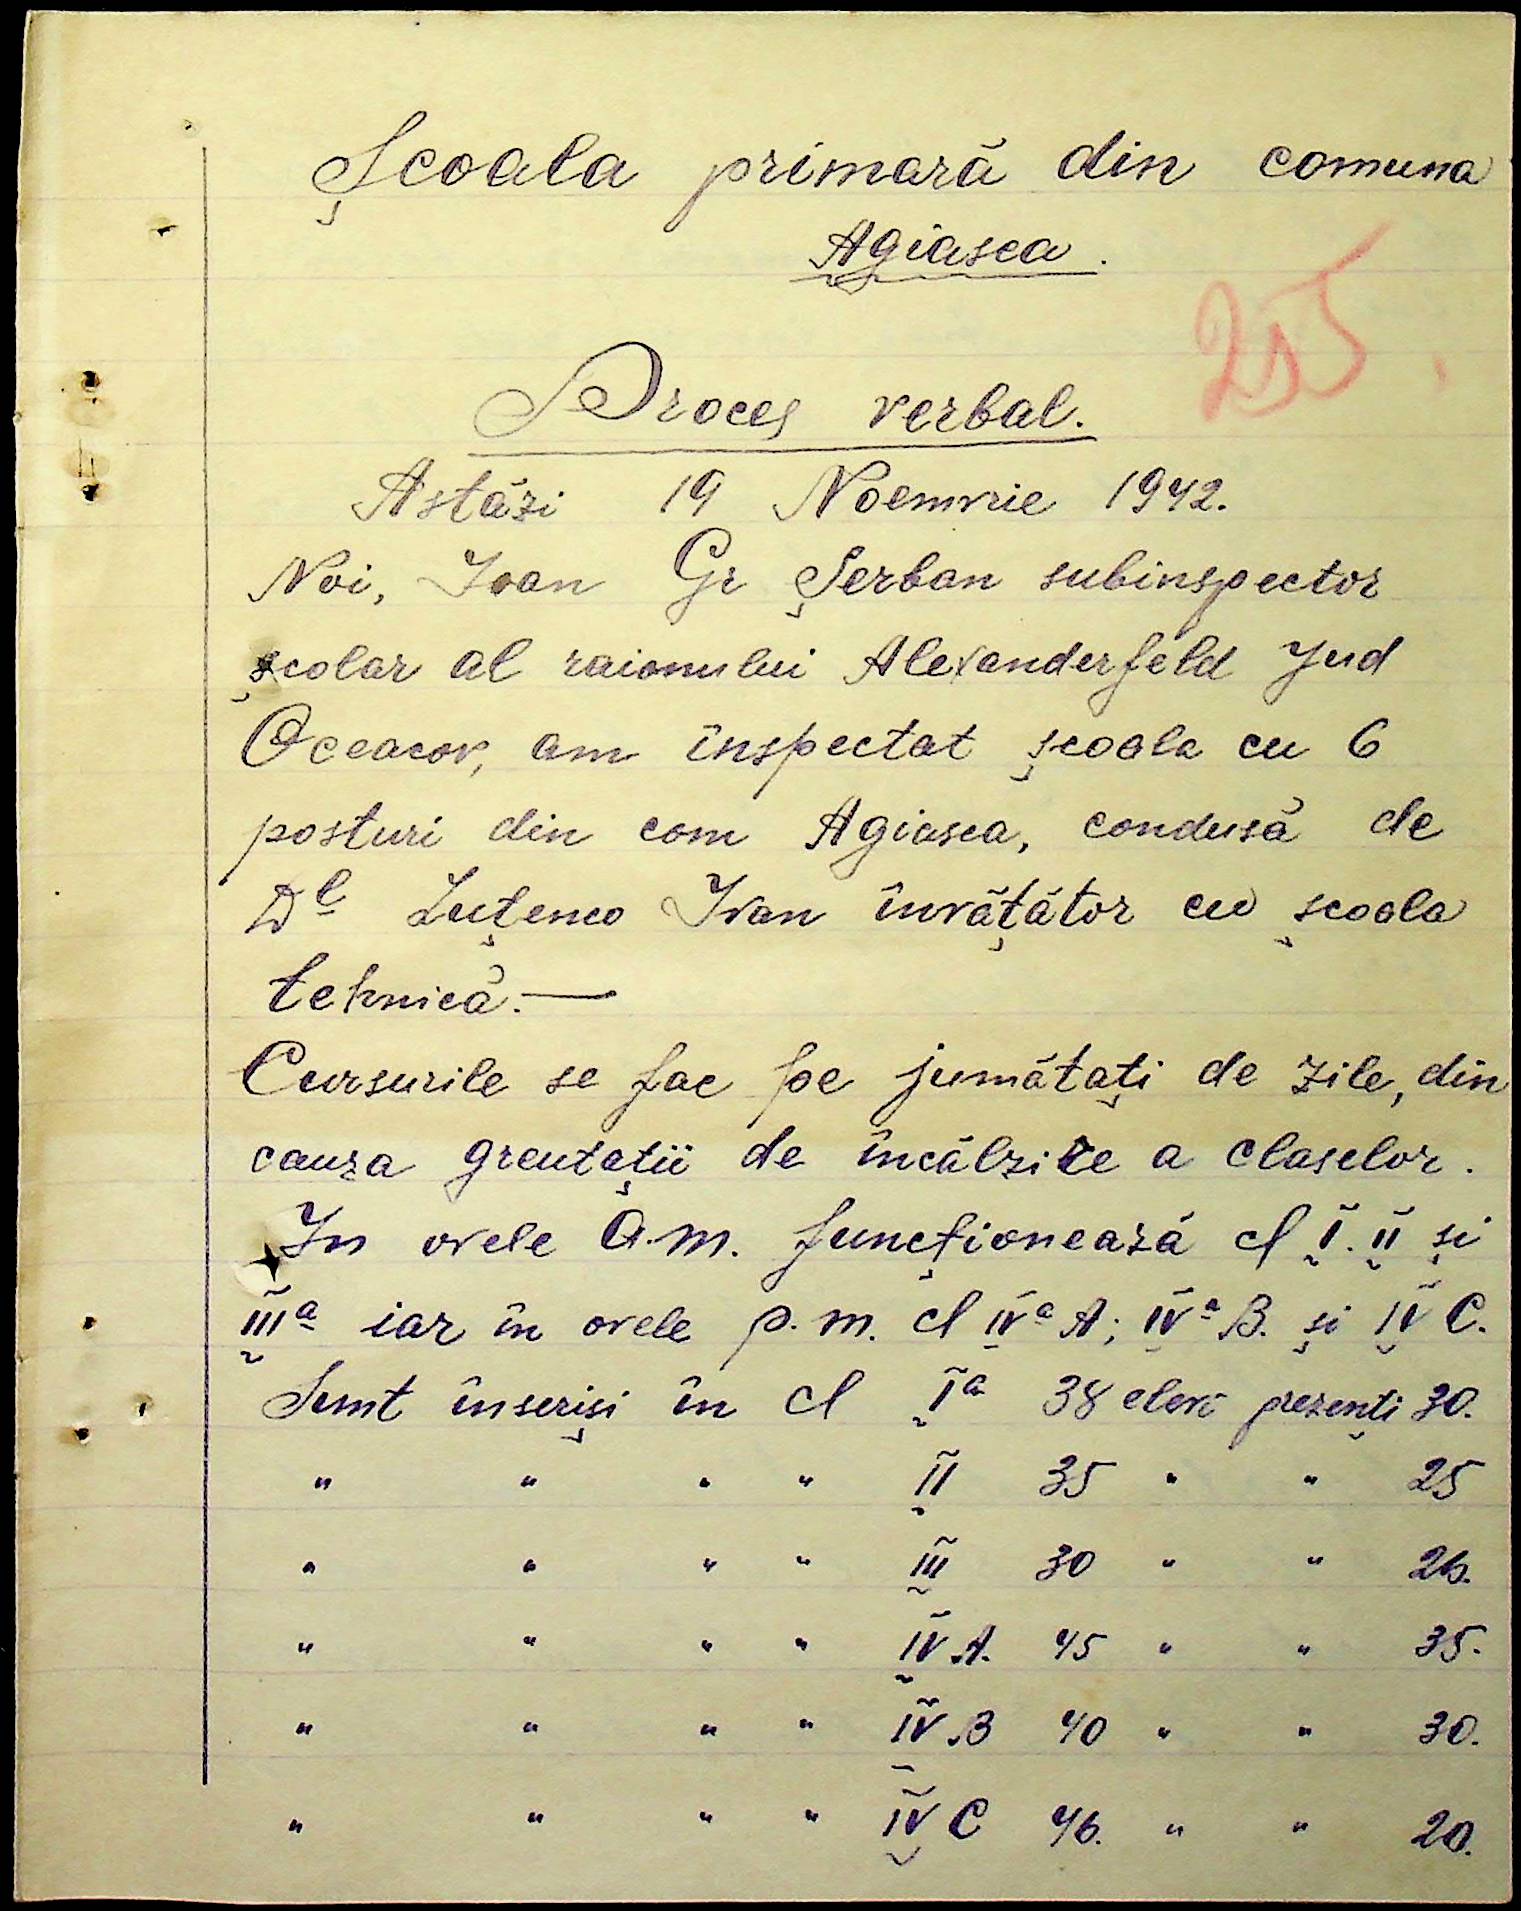 Școala primară din comuna
Agiasca.
255
Proces verbal.
Astăzi 19 Noemvrie 1942.
Noi, Ioan Gr Șerban subinspector
școlar al raionului Alexanderfeld Jud
Oceacov, am inspectat școala cu 6
posturi din com Agiasca, condusă de
Dl Luțenco Ivan învățător cu școala
tehnică.—
Cursurile se fac pe jumătați de zile, din
cauza greutații de încălzire a claselor.
In orele a.m. funcționează cl I. II și
IIIa iar în orele p.m. cl IVa A; IVa B. și IV C.
Sunt înscriși în cl Ia 38 elevi prezenți 30.
" " " " II 35 " " 25
" " " " III 30 " " 26.
" " " " IV A. 45 " " 35.
" " " " IV B 40 " " 30.
" " " " IV C 46. " " 20.